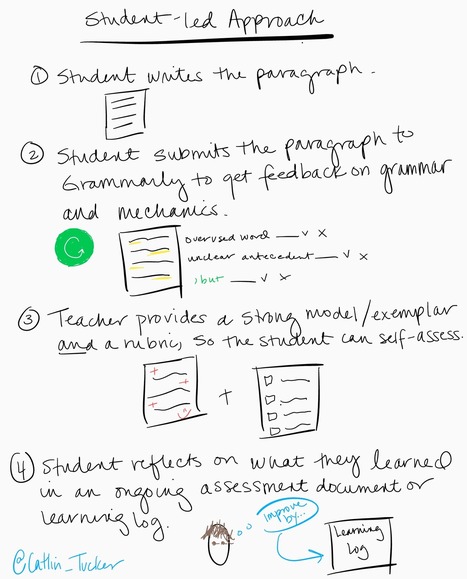 Student-led Approach
① Student writes the paragraph.
② Student submits the paragraph to
Grammarly to get feedback on grammar
and mechanics.
G
overused word ___ ✓ ✗
unclear antecedent ___ ✓ ✗
, but ___ ✓ ✗
③ Teacher provides a strong model/exemplar
and a rubric, so the student can self-assess.
+
④ Student reflects on what they learned
in an ongoing assessment document or
learning log.
improve
by...
Learning
Log
@Catlin_Tucker